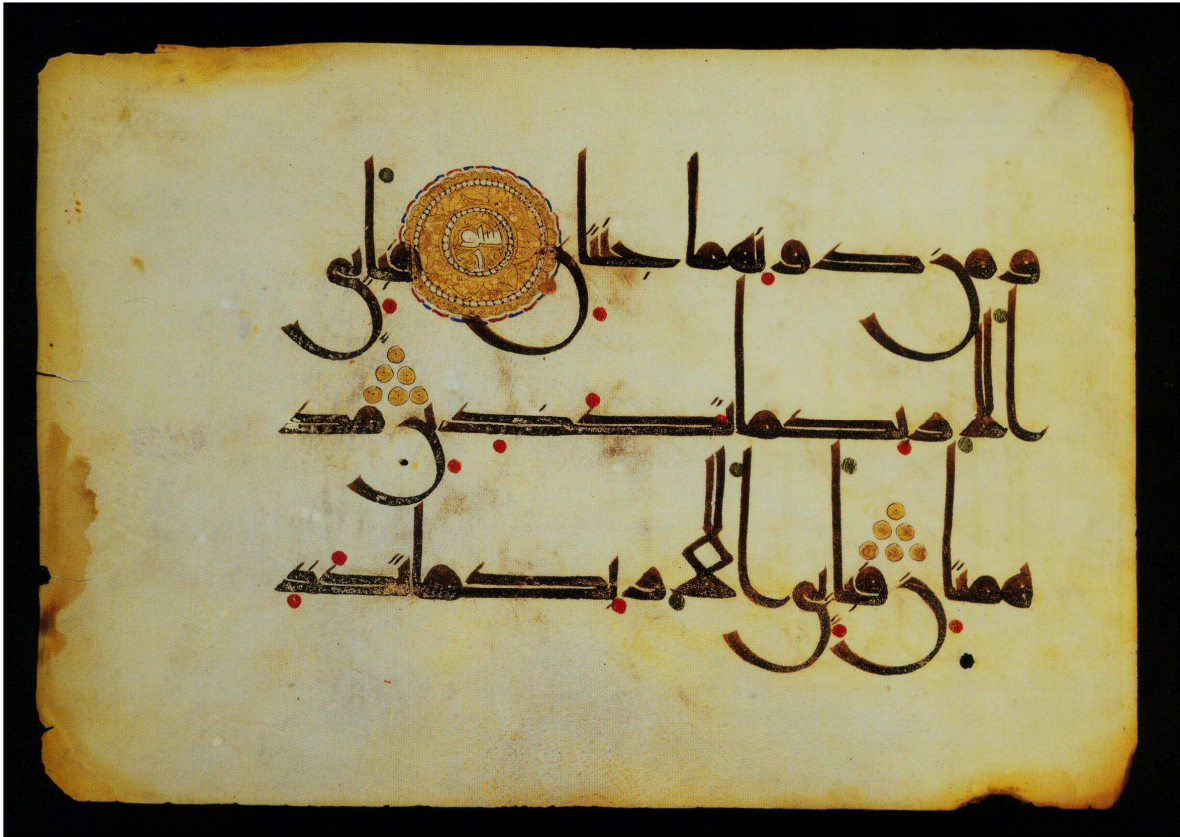 ومن دونهما جنتان ستون فباي
الا ربكما تكذبن مد
همتان فباي الا ربكما تكذ